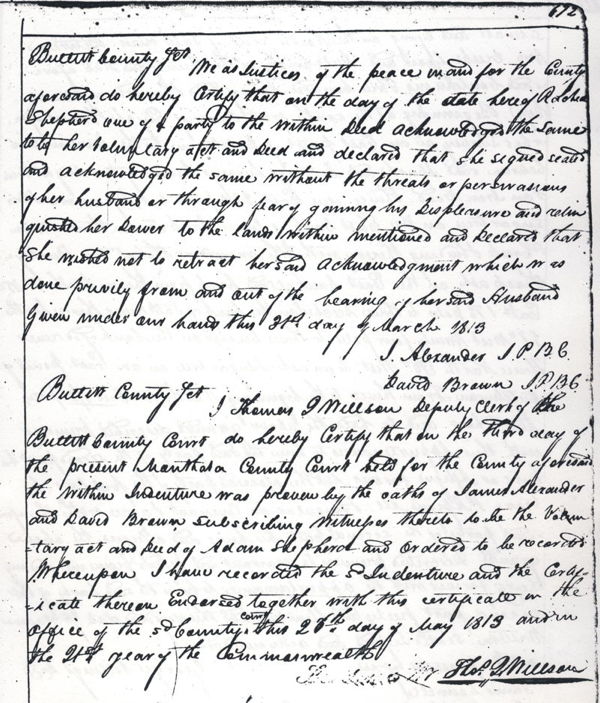 672
Bullitt County Sct.
We as Justices of the peace in and for the County
aforesaid do hereby Certify that on the day of the date hereof Rachel
Shepherd one of & party to the Within Deed acknowledged the Same
to be her Voluntary act and Deed and declared that she signed sealed
and acknowledged the same without the threats or perswasions
of her husband or through fear of gaining his Displeasure and relin
quished her Dower to the lands within mentioned and Declared that
She wished not to retract her said acknowledgment which was
done privily from and out of the hearing of her said Husband
Given under our hands this 31st day of March 1813
J. Alexander J P B.C.
David Brown J.P.B.C
Bullitt County Sct
I Thomas J Willson Deputy Clerk of the
Bullitt County Court do hereby Certify that on the third day of
the present Month at a County Court held for the County aforesaid
the within Indenture was proven by the oaths of James Alexander
and David Brown Subscribing Witnesses thereto to be the Volun
-tary act and Deed of Adam Shepherd and Ordered to be recorded
Whereupon I have recorded the sd Indenture and the Certif-
-icate thereon Endorsed together with this certificate in the
Office of the sd County Court this 28th day of May 1813 and in
the 21st year of the Commonwealth
Tho. J Willson